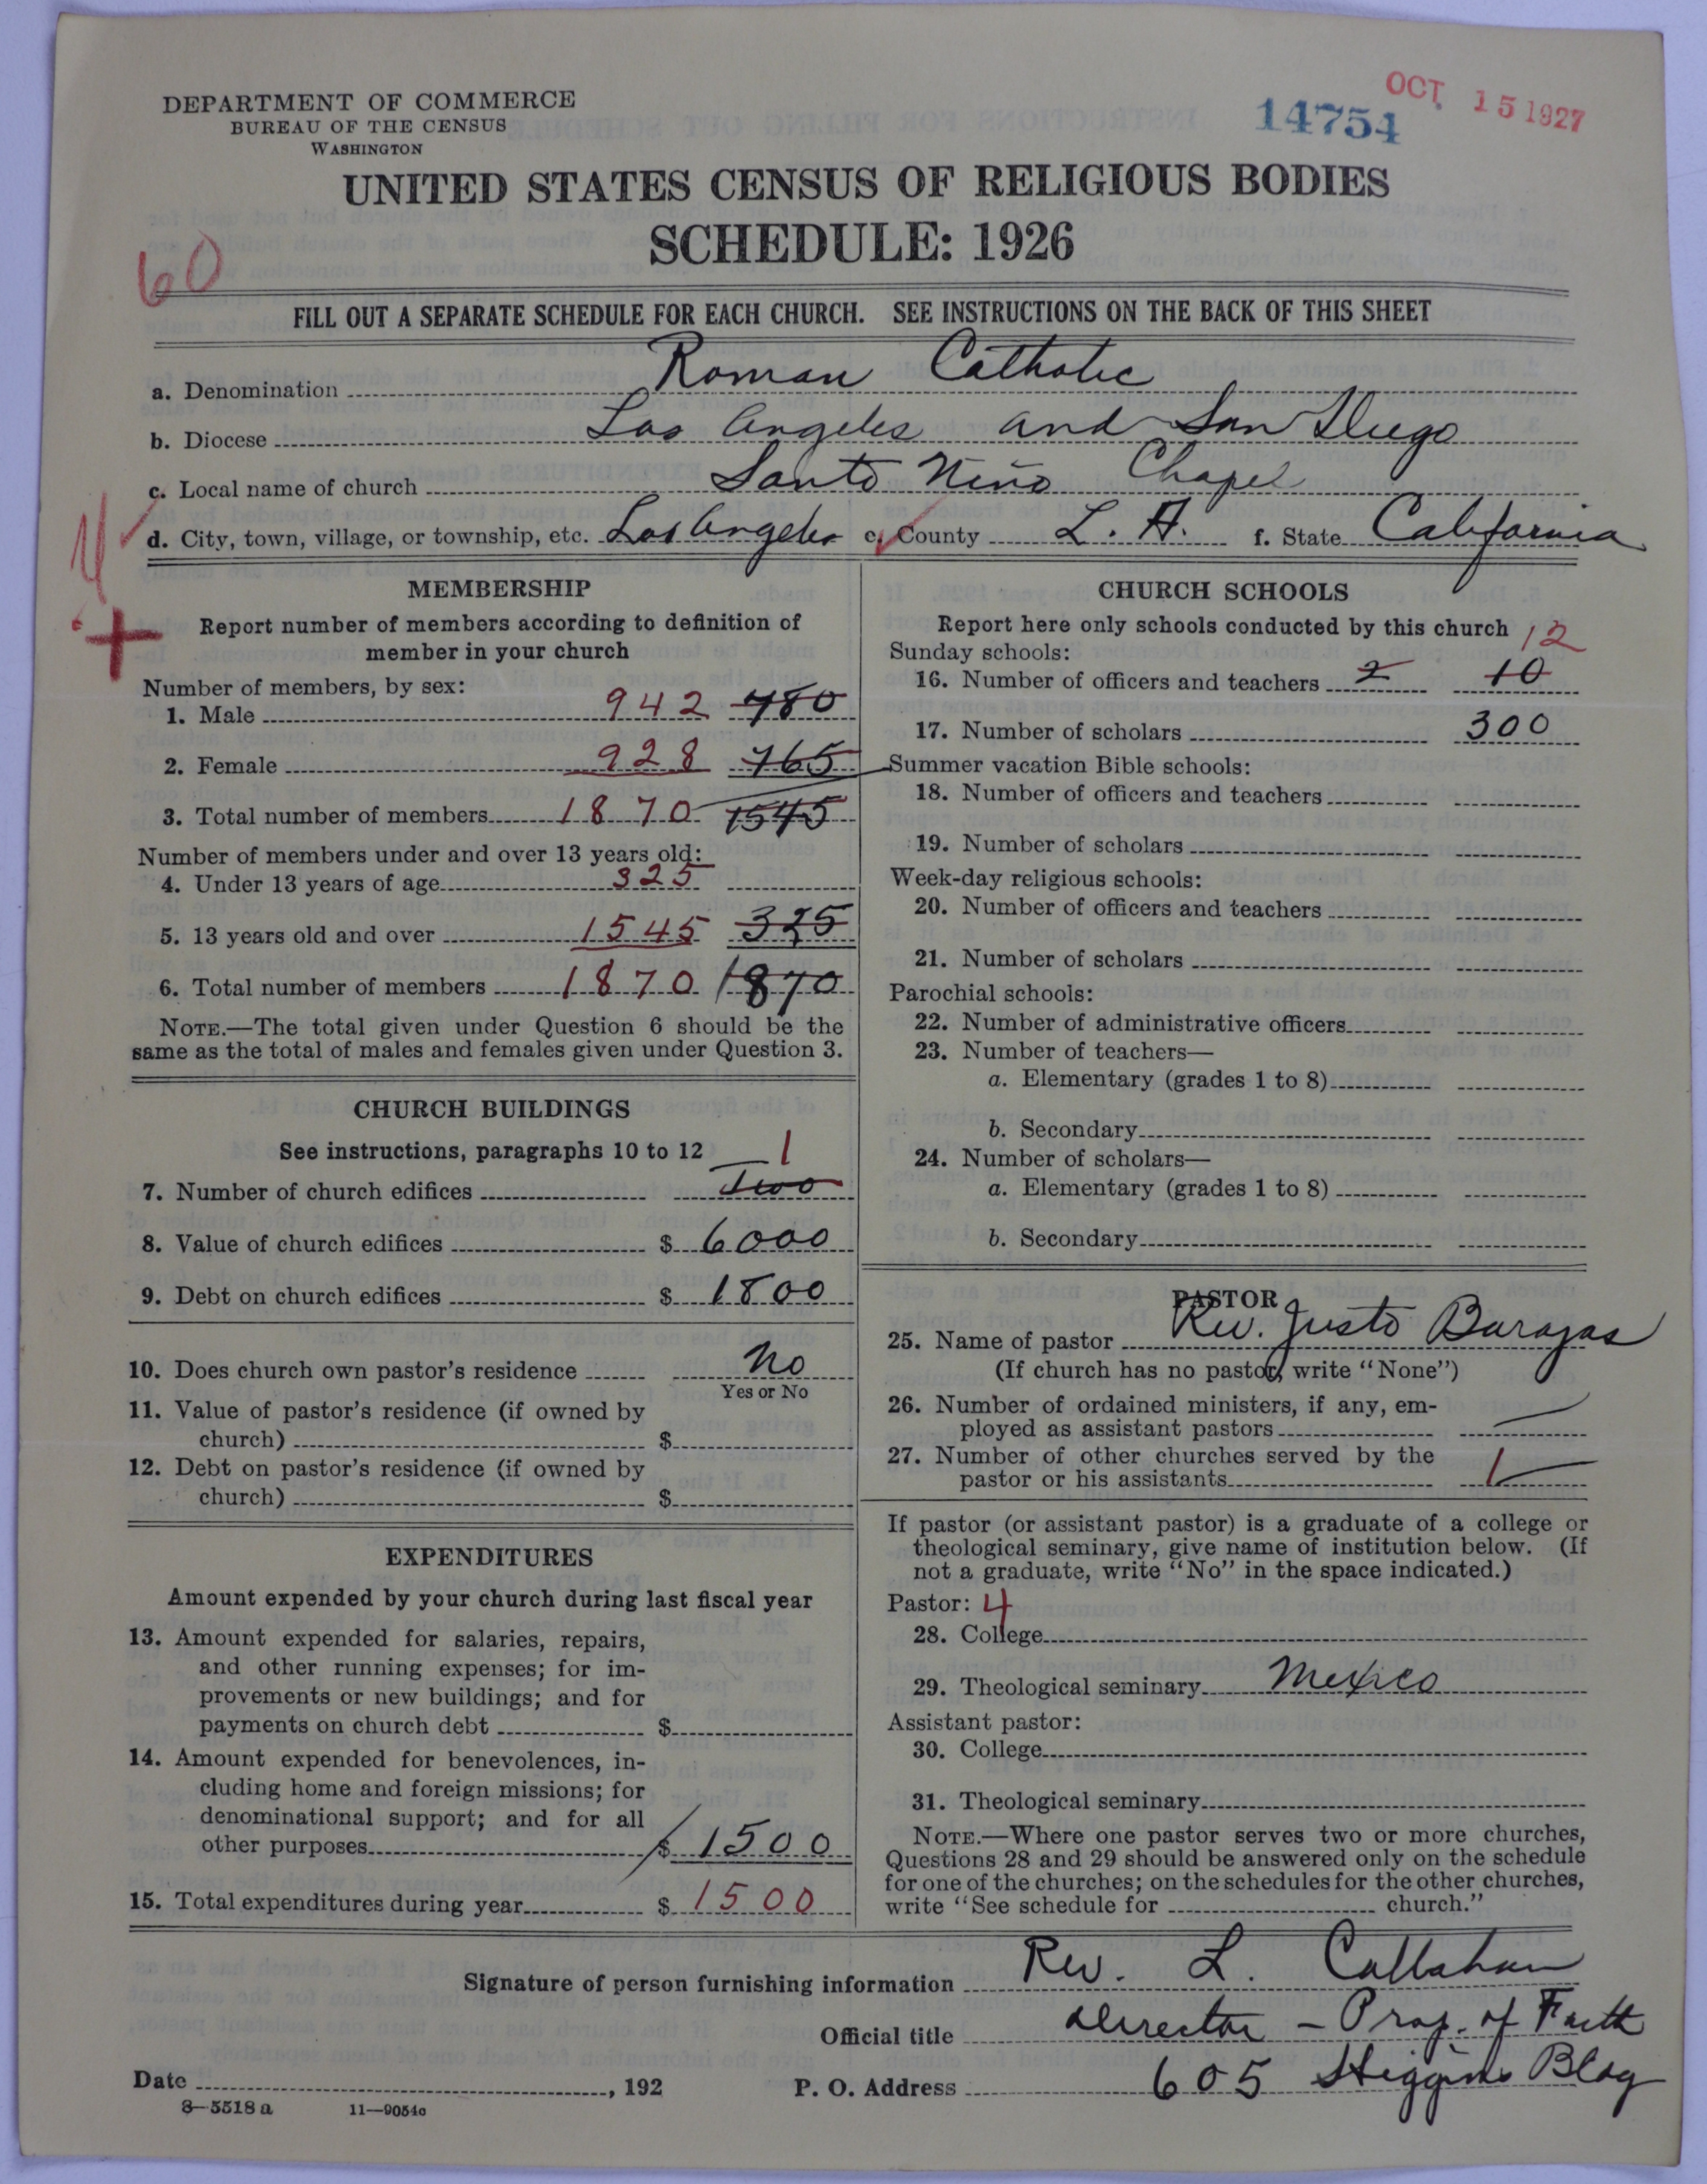 DEPARTMENT OF COMMERCE
BUREAU OF THE CENSUS
WASHINGTON
14754
OCT. 15 1927
UNITED STATES CENSUS OF RELIGIOUS BODIES
SCHEDULE: 1926
60
FILL OUT A SEPARATE SCHEDULE FOR EACH CHURCH. SEE INSTRUCTIONS ON THE BACK OF THIS SHEET
a. Denomination Roman Catholic
b. Diocese Los Angeles and San Diego
c. Local name of church Santo Niño Chapel
d. City, town, village, or township, etc. Los Angeles e. County L. A. f. State California
MEMBERSHIP
Report number of members according to definition of
member in your church
Number of members, by sex:
1. Male 942 780
2. Female 928 765
3. Total number of members 1870 1545
Number of members under and over 13 years old:
4. Under 13 years of age 325
5. 13 years old and over 1545 325
6. Total number of members 1870 1870
NOTE.—The total given under Question 6 should be the
same as the total of males and females given under Question 3.
CHURCH BUILDINGS
See instructions, paragraphs 10 to 12
1
7. Number of church edifices Two
8. Value of church edifices $ 6000
9. Debt on church edifices $ 1800
10. Does church own pastor's residence No
Yes or No
11. Value of pastor's residence (if owned by
church) $
12. Debt on pastor's residence (if owned by
church) $
EXPENDITURES
Amount expended by your church during last fiscal year
13. Amount expended for salaries, repairs,
and other running expenses; for im-
provements or new buildings; and for
payments on church debt $
14. Amount expended for benevolences, in-
cluding home and foreign missions; for
denominational support; and for all
other purposes $ 1500
15. Total expenditures during year $ 1500
CHURCH SCHOOLS
Report here only schools conducted by this church
12
Sunday schools:
16. Number of officers and teachers 2 10
17. Number of scholars 300
Summer vacation Bible schools:
18. Number of officers and teachers
19. Number of scholars
Week-day religious schools:
20. Number of officers and teachers
21. Number of scholars
Parochial schools:
22. Number of administrative officers
23. Number of teachers—
a. Elementary (grades 1 to 8)
b. Secondary
24. Number of scholars—
a. Elementary (grades 1 to 8)
b. Secondary
PASTOR
25. Name of pastor Rev. Justo Barajas
(If church has no pastor, write "None")
26. Number of ordained ministers, if any, em-
ployed as assistant pastors
27. Number of other churches served by the
pastor or his assistants 1
If pastor (or assistant pastor) is a graduate of a college or
theological seminary, give name of institution below. (If
not a graduate, write "No" in the space indicated.)
Pastor: 4
28. College
29. Theological seminary Mexico
Assistant pastor:
30. College
31. Theological seminary
NOTE.—Where one pastor serves two or more churches,
Questions 28 and 29 should be answered only on the schedule
for one of the churches; on the schedules for the other churches,
write "See schedule for church."
Signature of person furnishing information Rev. L. Callahan
Official title Director - Prop. of Faith
Date , 192 P. O. Address 605 Higgins Bldg
8—5518 a 11—9054c